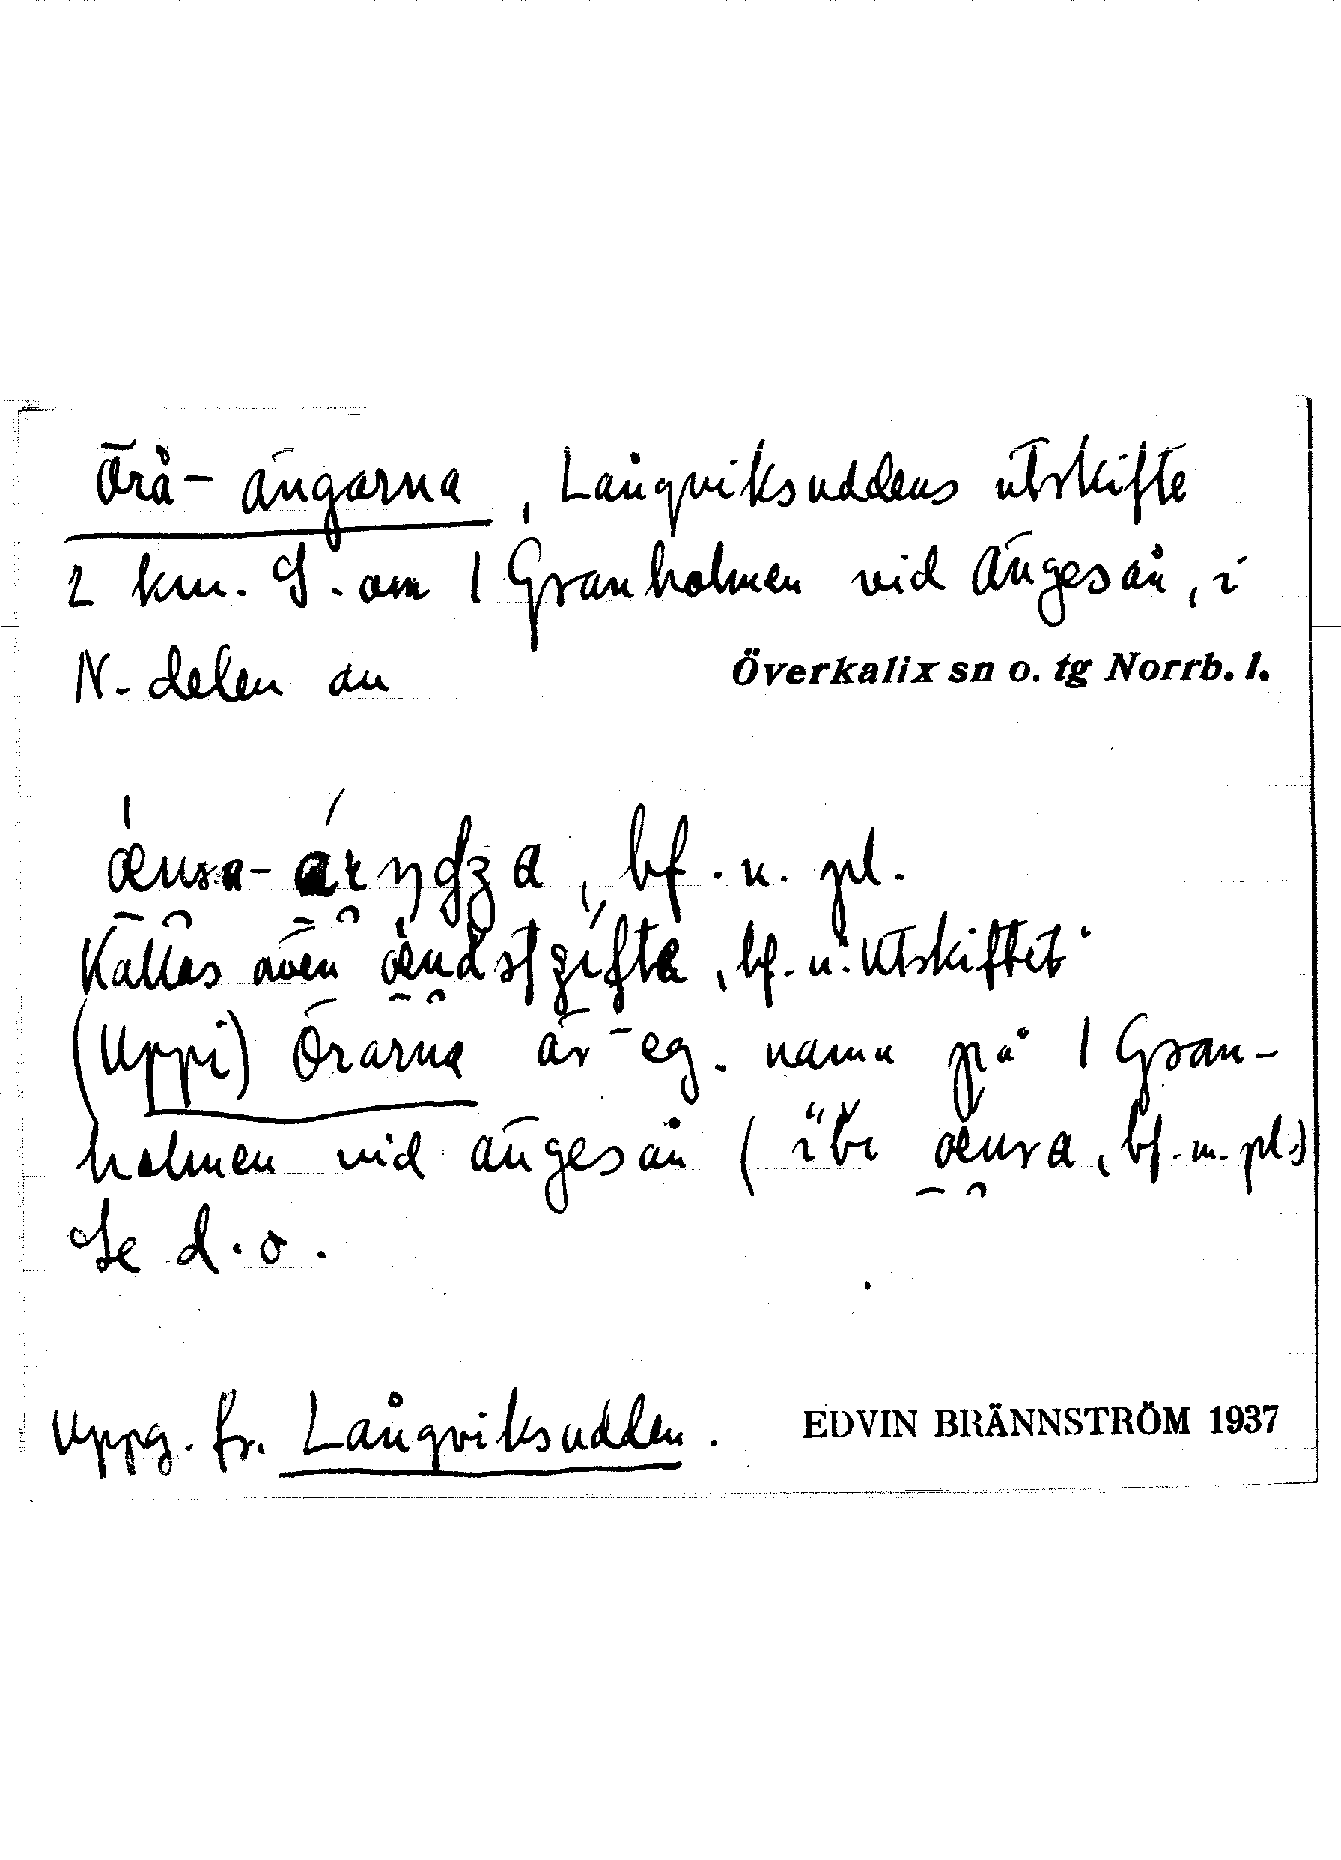 Örå-ängarna, Långviksuddens utskifte
2 km. S. om 1 Granholmen vid Ängesån, i
N. delen av Överkalix sn o. tg Norrb. l.
bf. n. pl.
Kallas även bf. n. "Utskiftet"
(Uppi) Örarna är eg. namn på 1 Gran-
holmen vid Ängesån ( bf. m. pl.)
Se d.o.
Uppg. fr. Långviksudden. EDVIN BRÄNNSTRÖM 1937